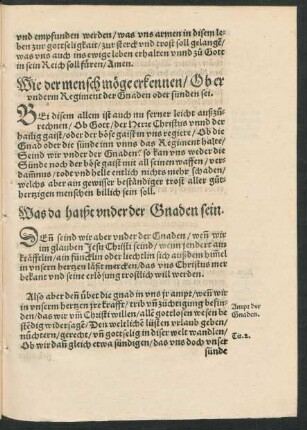 vnd empfunden werden/ was vns armen in disem le-
ben zur gottseligkait/ zur sterck vnd trost soll gelangē/
was vns auch ins ewige leben erhalten vnnd zů Gott
in sein Reich soll füren/ Amen.
Wie der mensch möge erkennen/ Ob er
vnderm Regiment der Gnaden oder sünden sei.
Bei disem allem ist auch nu ferner leicht außzů-
rechnen/ Ob Gott/ der Herre Christus vnnd der
hailig gaist/ oder der böse gaist in vns regire/ Ob die
Gnad oder die sünde inn vnns das Regiment halte/
Seind wir vnder der Gnaden/ so kan vns weder die
Sünde noch der böse gaist mit all seinen waffen/ ver-
dammuß/ todt vnd helle entlich nichts mehr schaden/
welchs aber am gewisser beständiger trost aller güt-
hertzigen menschen billich sein soll.
Was da haißt vnder der Gnaden sein.
Deñ seind wir aber vnder der Gnaden/ weñ wir
in glauben Jesu Christi seind/ wenn jendert ain
kräfftlin/ ain füncklin oder liechtlin sich auß dem himel
in vnserm hertzen läßt mercken/ das vns Christus mer
bekant vnd seine erlösung trostlich will werden.
Also aber deñ über die gnad in vns jr ampt/ weñ wir
in vnserm hertzen jre krafft/ trib vñ züchtigung befin-
den/ das wir vm̃ Christi willen/ alle gottlosen wesen be-
stēdig widersagē/ Den weltlichē lüsten vrlaub geben/
nüchtern/ gerecht/ vñ gottselig in diser welt wandlen/
Ob wir dañ gleich etwa sündigen/ das vns doch vnser
sünde
Ampt der
Gnaden.
Tit. 2.